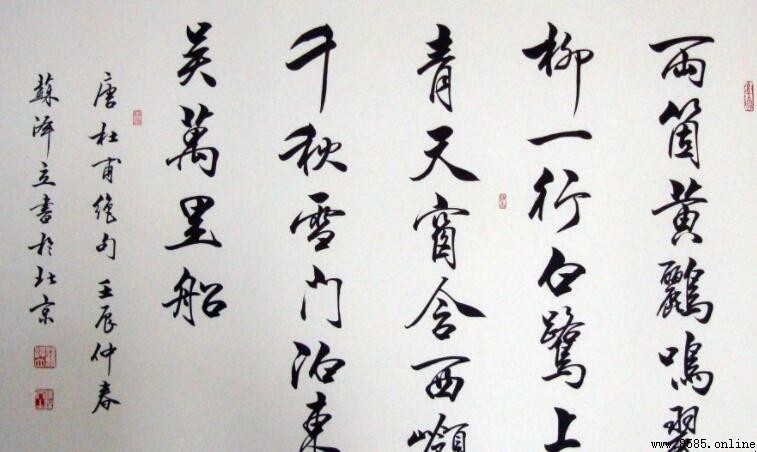 两箇黄鸝鳴翠
柳一行白鷺上
青天窗含西嶺
千秋雪门泊東
吴萬里船
唐杜甫絕句 壬辰仲春
蘇澤立書於北京
www.8585.online